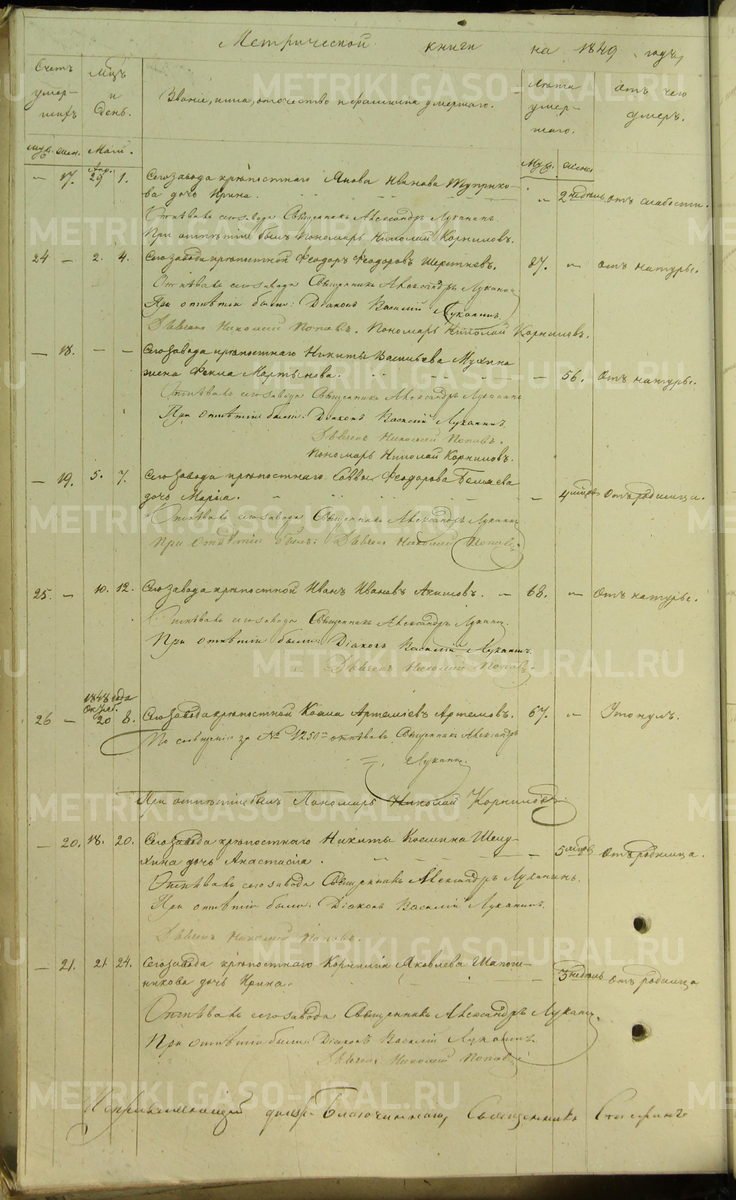 Метрической книги на 1849 годъ,
Счетъ умер-шихъ
Мцъ и День.
Званіе, имя, отчество и фамилія умершаго.
Лѣта умер-шаго.
Отъ чего умеръ.
муж. жен. Май. Муж. жен.
Апр.
— 17. 29 1. Сегозавода крѣпостнаго Якова Иванова
ва дочь Ирина. — 2 недѣль отъ слабости.
Отпѣвалъ сегозавода Священникъ Александръ Луканинъ.
При отпѣтіи былъ Пономарь Николай Корниловъ.
24 — 2. 4. Сегозавода крѣпостной Ѳеодоръ Ѳеодоровъ 87. — отъ натуры.
Отпѣвалъ сегозавода Священникъ Александръ Луканинъ
При отпѣтіи были: Діаконъ Василій Луканинъ
Дьячекъ Николай Поповъ. Пономарь Николай Корниловъ.
— 18. — — Сегозавода крѣпостнаго Никиты Васильева Мухина
жена Ѳекла Мартынова. — 56. отъ натуры.
Отпѣвалъ сегозавода Священникъ Александръ Луканинъ
При отпѣтіи были: Діаконъ Василій Луканинъ
Дьячекъ Николай Поповъ.
Пономарь Николай Корниловъ.
— 19. 5. 7. Сегозавода крѣпостнаго Саввы Ѳеодорова Беляева
дочь Марія. — 4 отъ родимца.
Отпѣвалъ сегозавода Священникъ Александръ Луканинъ
При отпѣтіи былъ: Дьячекъ Николай Поповъ
25. — 10. 12. Сегозавода крѣпостной Иванъ Ивановъ Акимовъ. — 68. — отъ натуры.
Отпѣвалъ сегозавода Священникъ Александръ Луканинъ
При отпѣтіи были: Діаконъ Василій Луканинъ
Дьячекъ Николай Поповъ.
1848 года
Октяб.
26 — 20 8. Сегозавода крѣпостной Косма Артеміевъ Артемовъ. 67. — Утонулъ.
По сообщенію за № 1250 отпѣвалъ Священникъ Александръ
Луканинъ
При отпѣтіи былъ Пономарь Николай Корниловъ.
— 20. 18. 20. Сегозавода крѣпостнаго Никиты Космина Шелу-
хина дочь Анастасія. — 5 отъ родимца.
Отпѣвалъ сегозавода Священникъ Александръ Луканинъ.
При отпѣтіи были: Діаконъ Василій Луканинъ
Дьячекъ Николай Поповъ.
— 21. 21 24. Сегозавода крѣпостнаго Корнилія Яковлева Шапош-
никова дочь Ирина. — 3 недѣль отъ родимца
Отпѣвалъ сегозавода Священникъ Александръ Луканинъ.
При отпѣтіи были: Діаконъ Василій Луканинъ
Дьячекъ Николай Поповъ
Исправляющій должн. Благочиннаго, Священникъ
METRIKI.GASO-URAL.RU